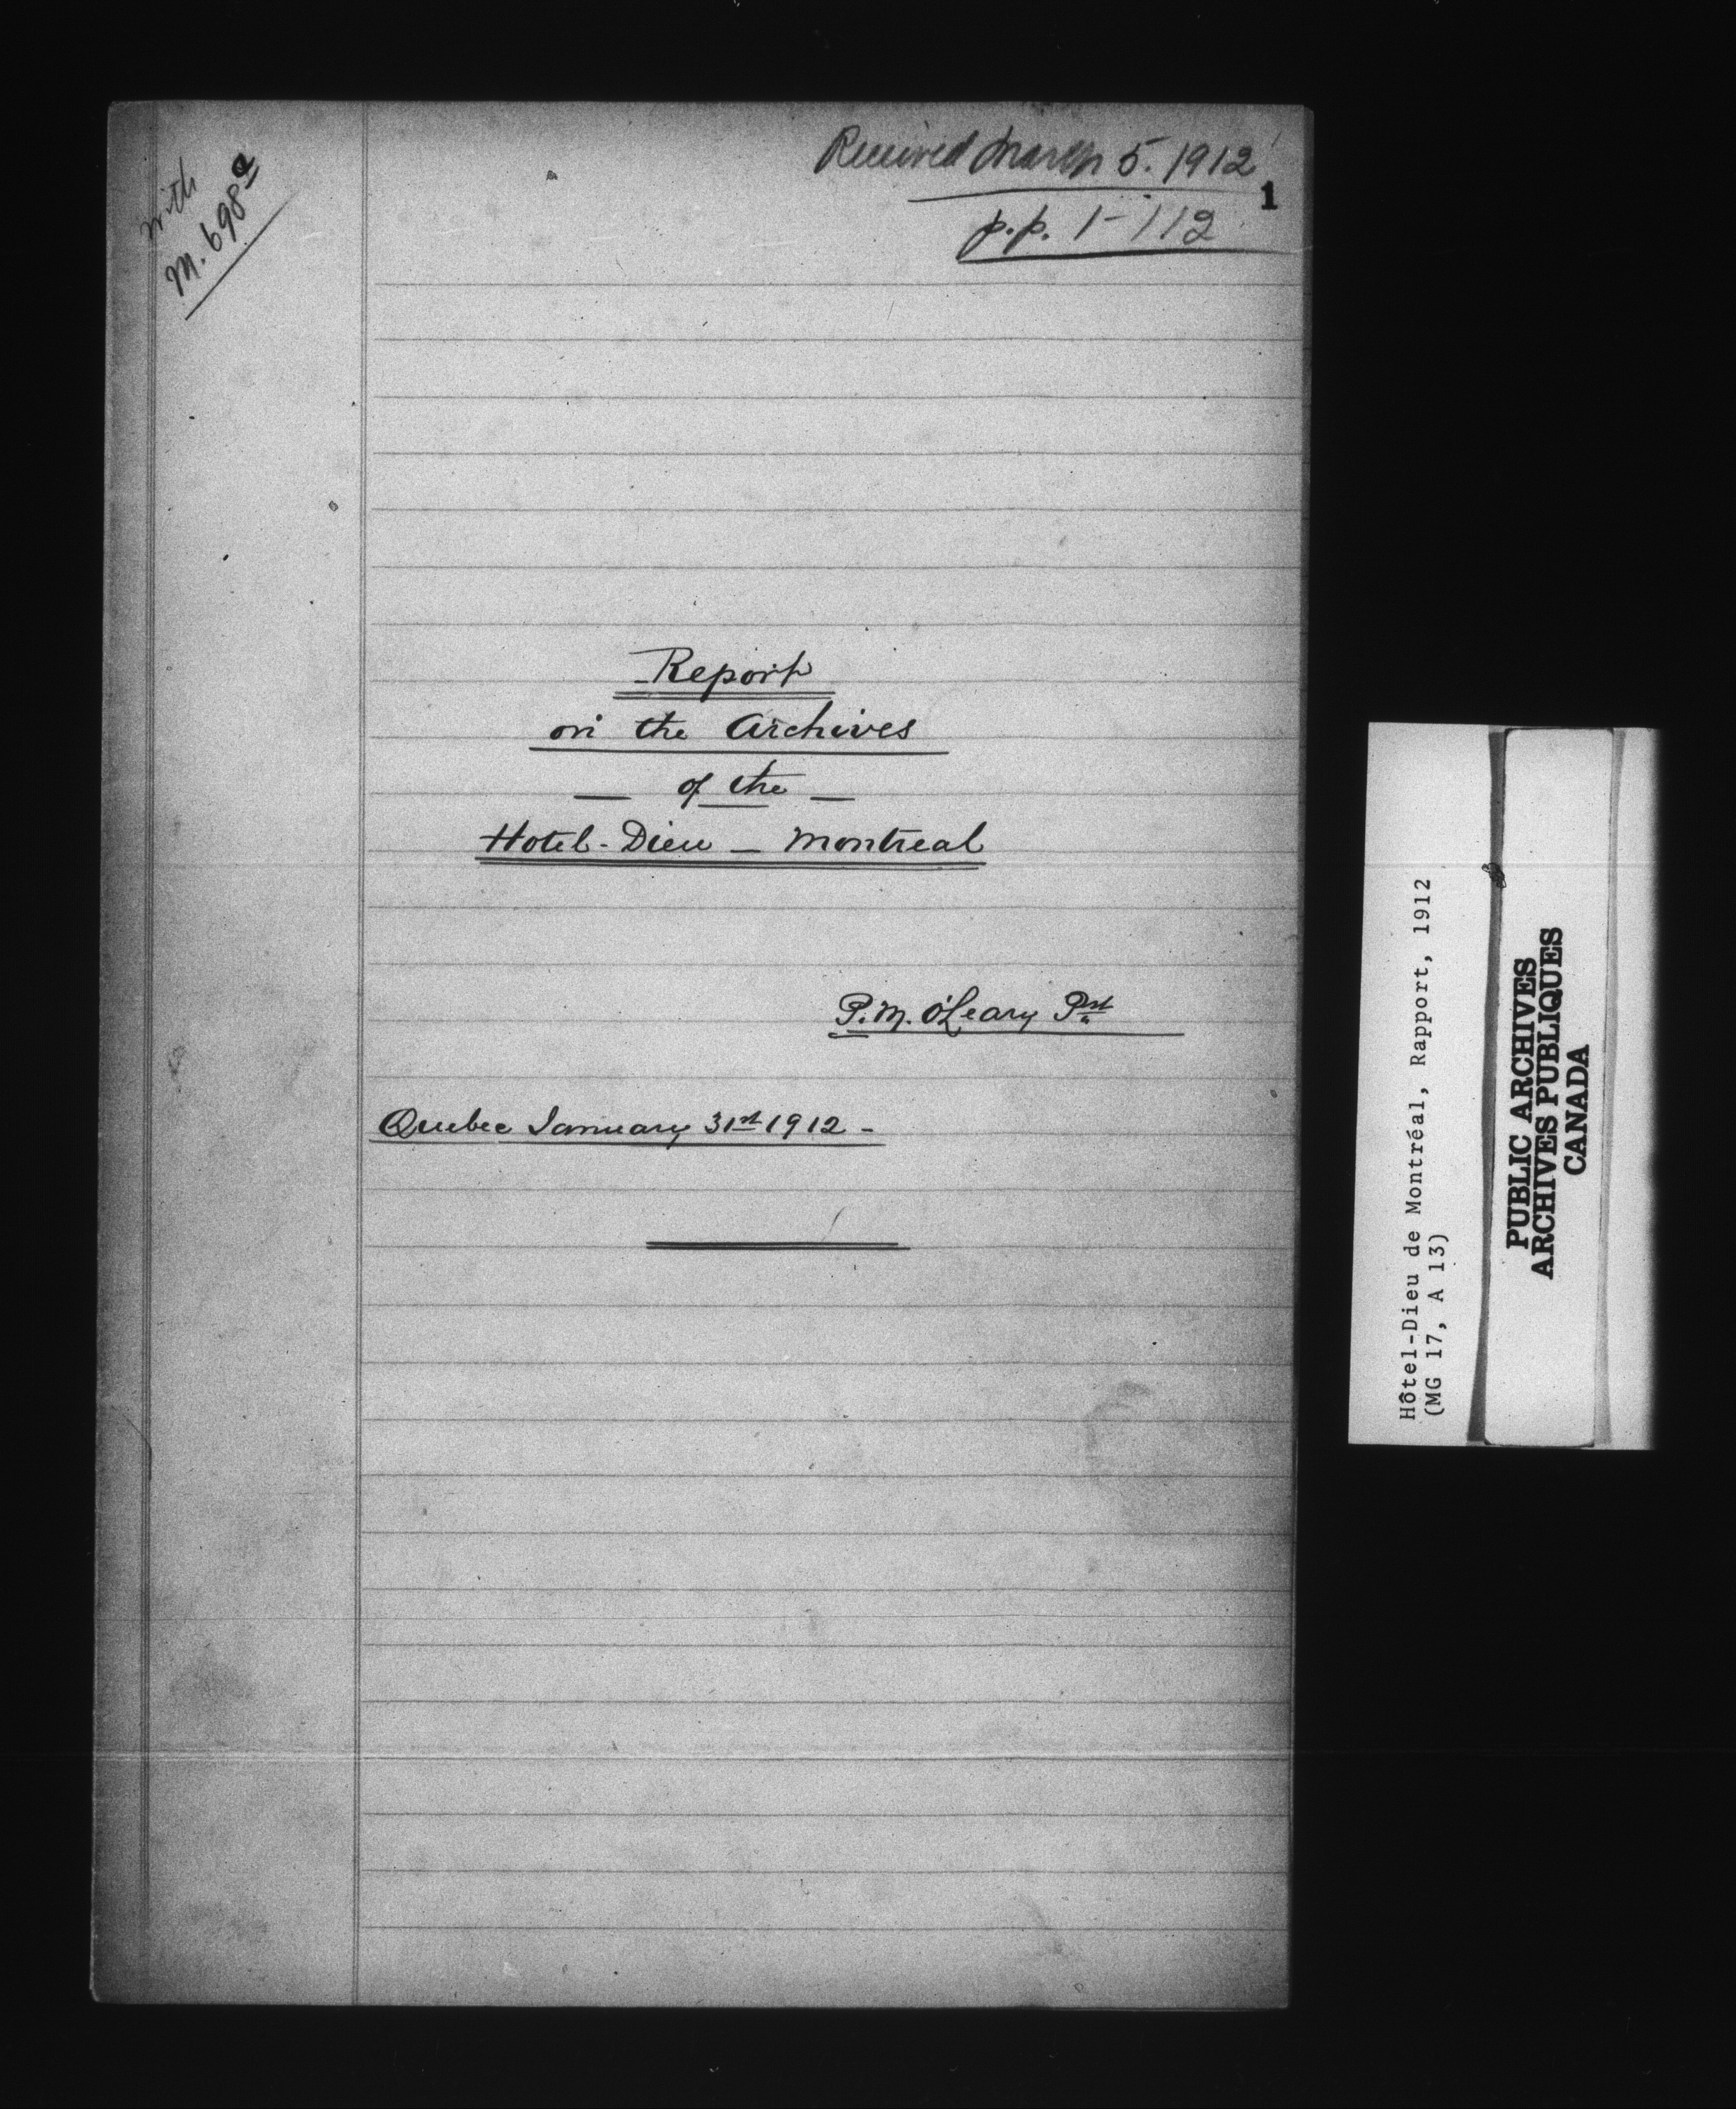 with
M. 698a
Received March 5. 1912
1
p.p. 1-112
Report
on the Archives
— of the —
Hotel-Dieu — Montreal
P.M. O'Leary Pst
Quebec January 31st 1912 -
Hôtel-Dieu de Montréal, Rapport, 1912
(MG 17, A 13)
PUBLIC ARCHIVES
ARCHIVES PUBLIQUES
CANADA